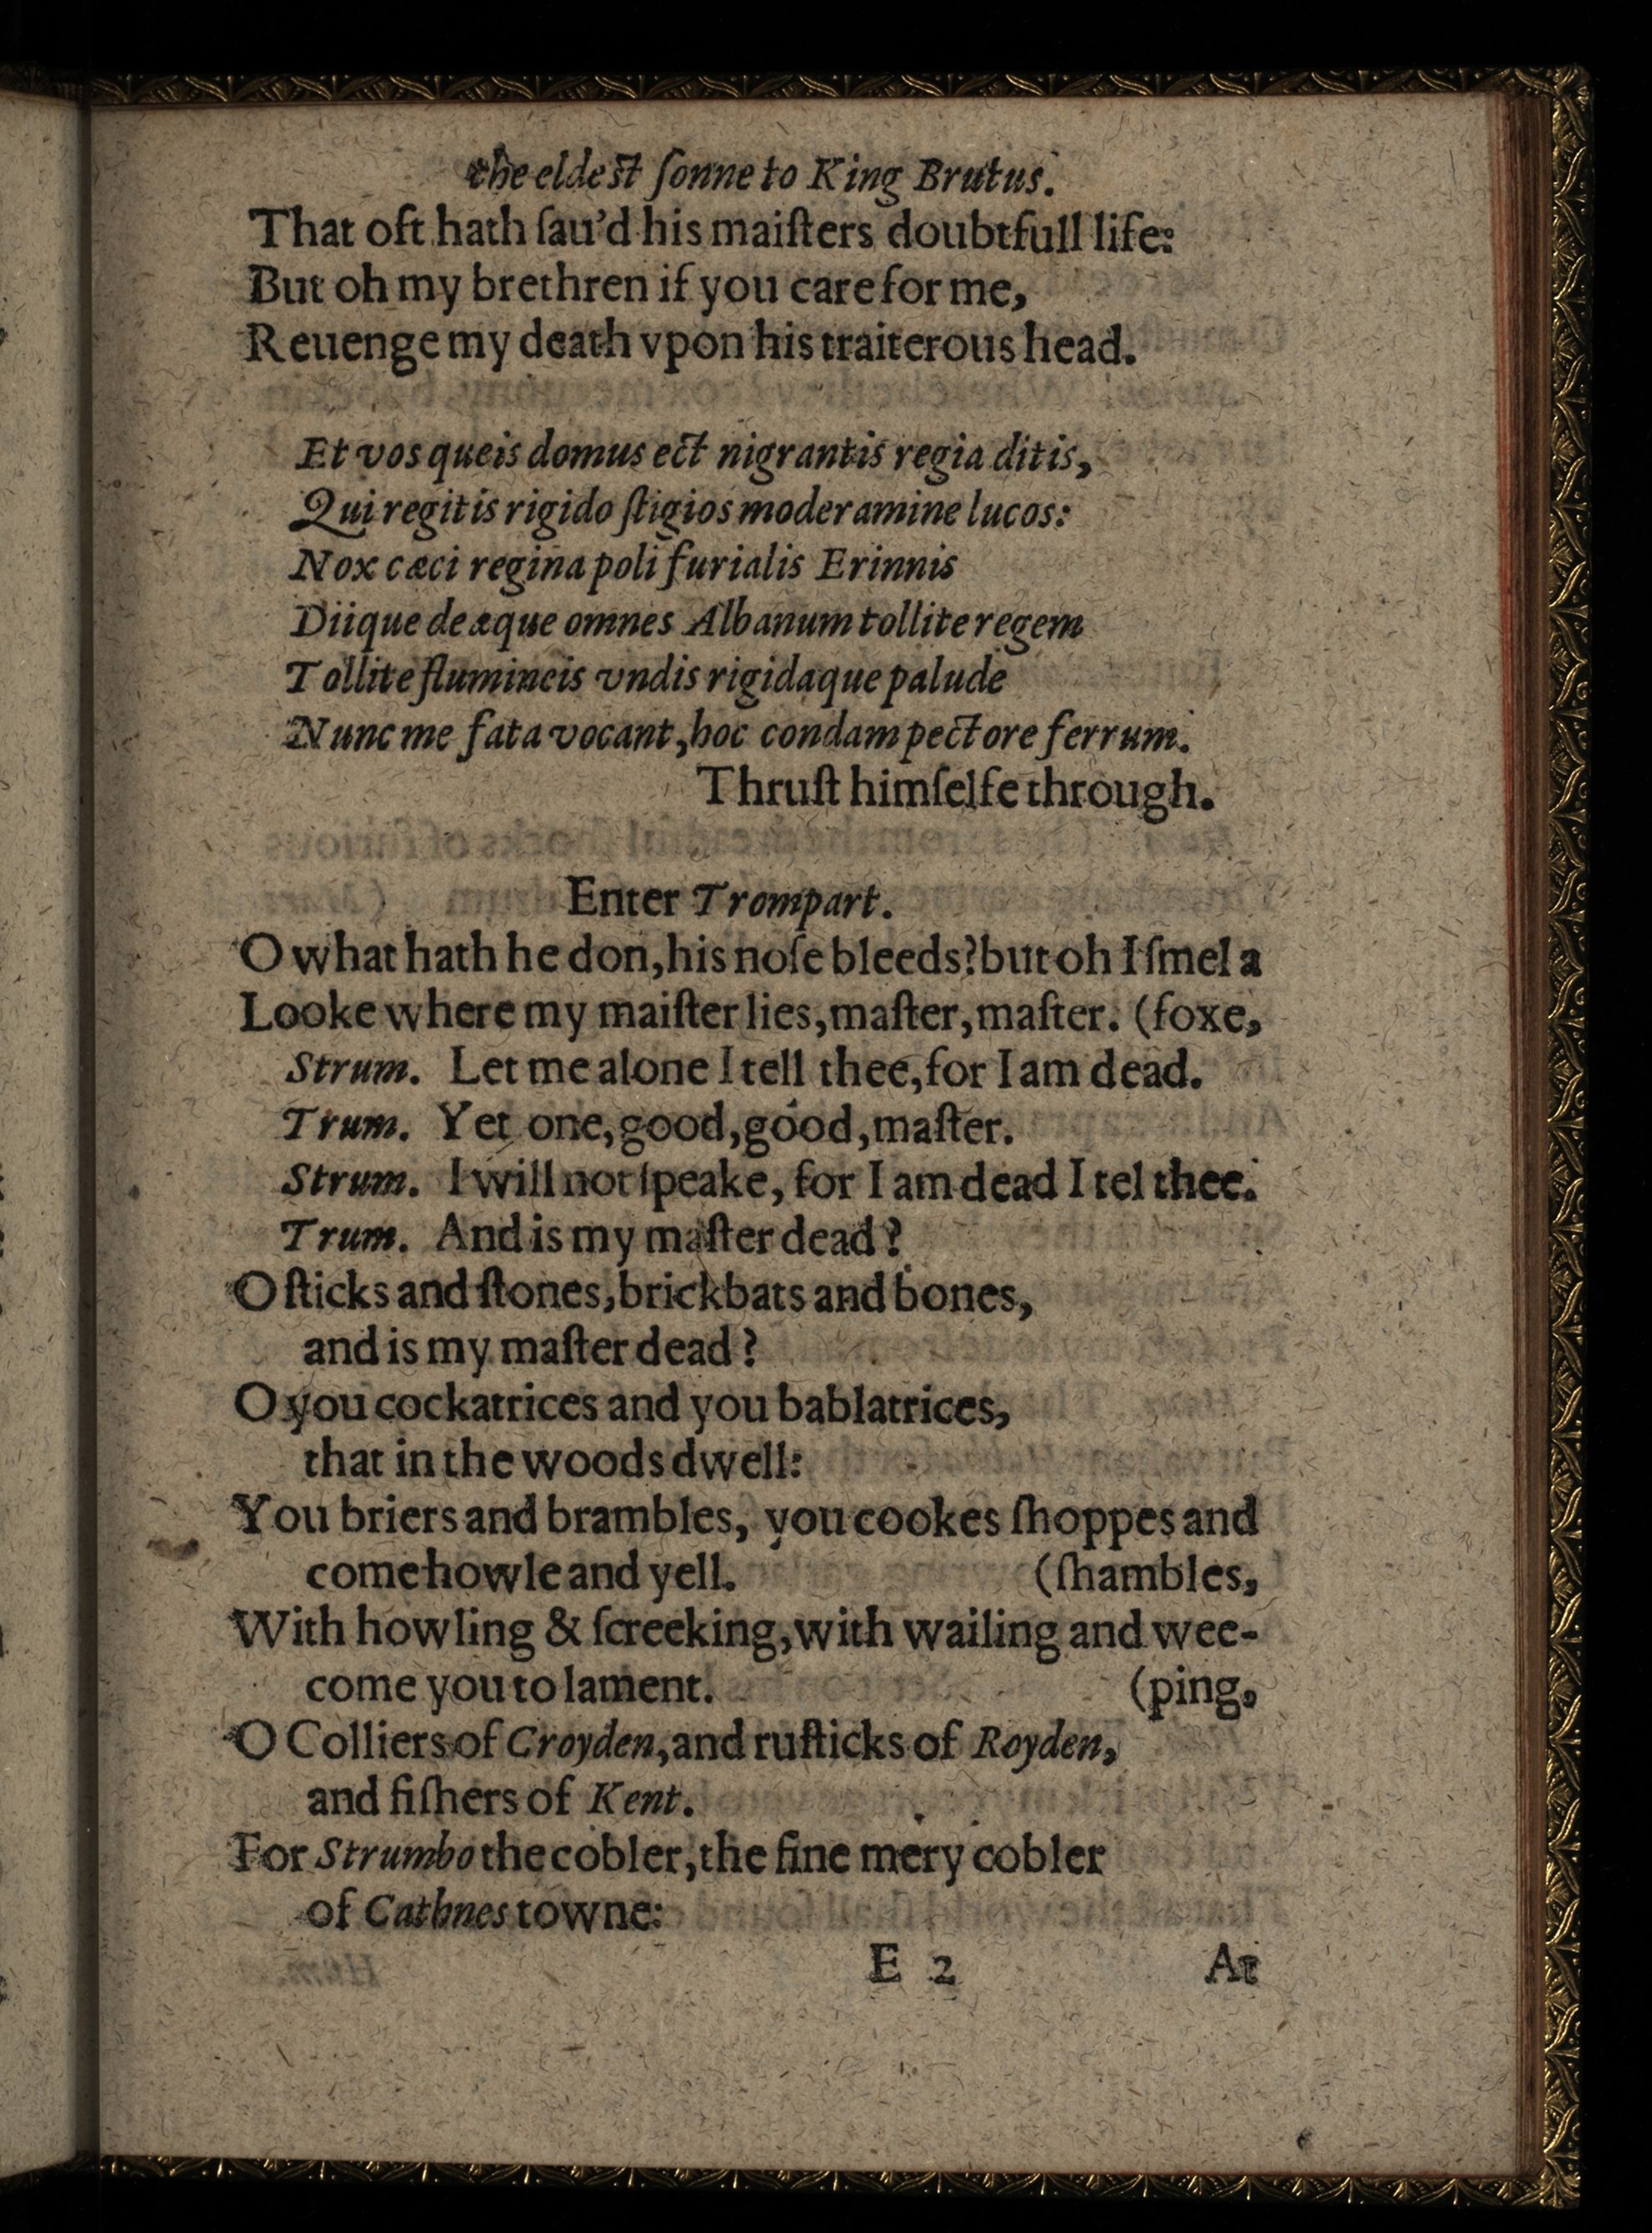 the eldest ſonne to King Brutus.
That oft hath ſau'd his maiſters doubtfull life:
But oh my brethren if you care for me,
Reuenge my death vpon his traiterous head.
Et vos queis domus ect nigrantis regia ditis,
Qui regitis rigido ſtigios moderamine lucos:
Nox cæci regina poli furialis Erinnis
Diique deæque omnes Albanum tollite regem
Tollite flumineis vndis rigidaque palude
Nunc me fata vocant, hoc condam pectore ferrum.
Thruſt himſelfe through.
Enter Trompart.
O what hath he don, his noſe bleeds? but oh I ſmel a
Looke where my maiſter lies, maſter, maſter. (foxe,
Strum. Let me alone I tell thee, for I am dead.
Trum. Yet one, good, good, maſter.
Strum. I will not ſpeake, for I am dead I tel thee.
Trum. And is my maſter dead?
O ſticks and ſtones, brickbats and bones,
and is my maſter dead?
O you cockatrices and you bablatrices,
that in the woods dwell:
You briers and brambles, you cookes ſhoppes and
come howle and yell. (ſhambles,
With howling & ſcreeking, with wailing and wee-
come you to lament. (ping,
O Colliers of Croyden, and ruſticks of Royden,
and fiſhers of Kent.
For Strumbo the cobler, the fine mery cobler
of Cathnes towne:
E 2 At